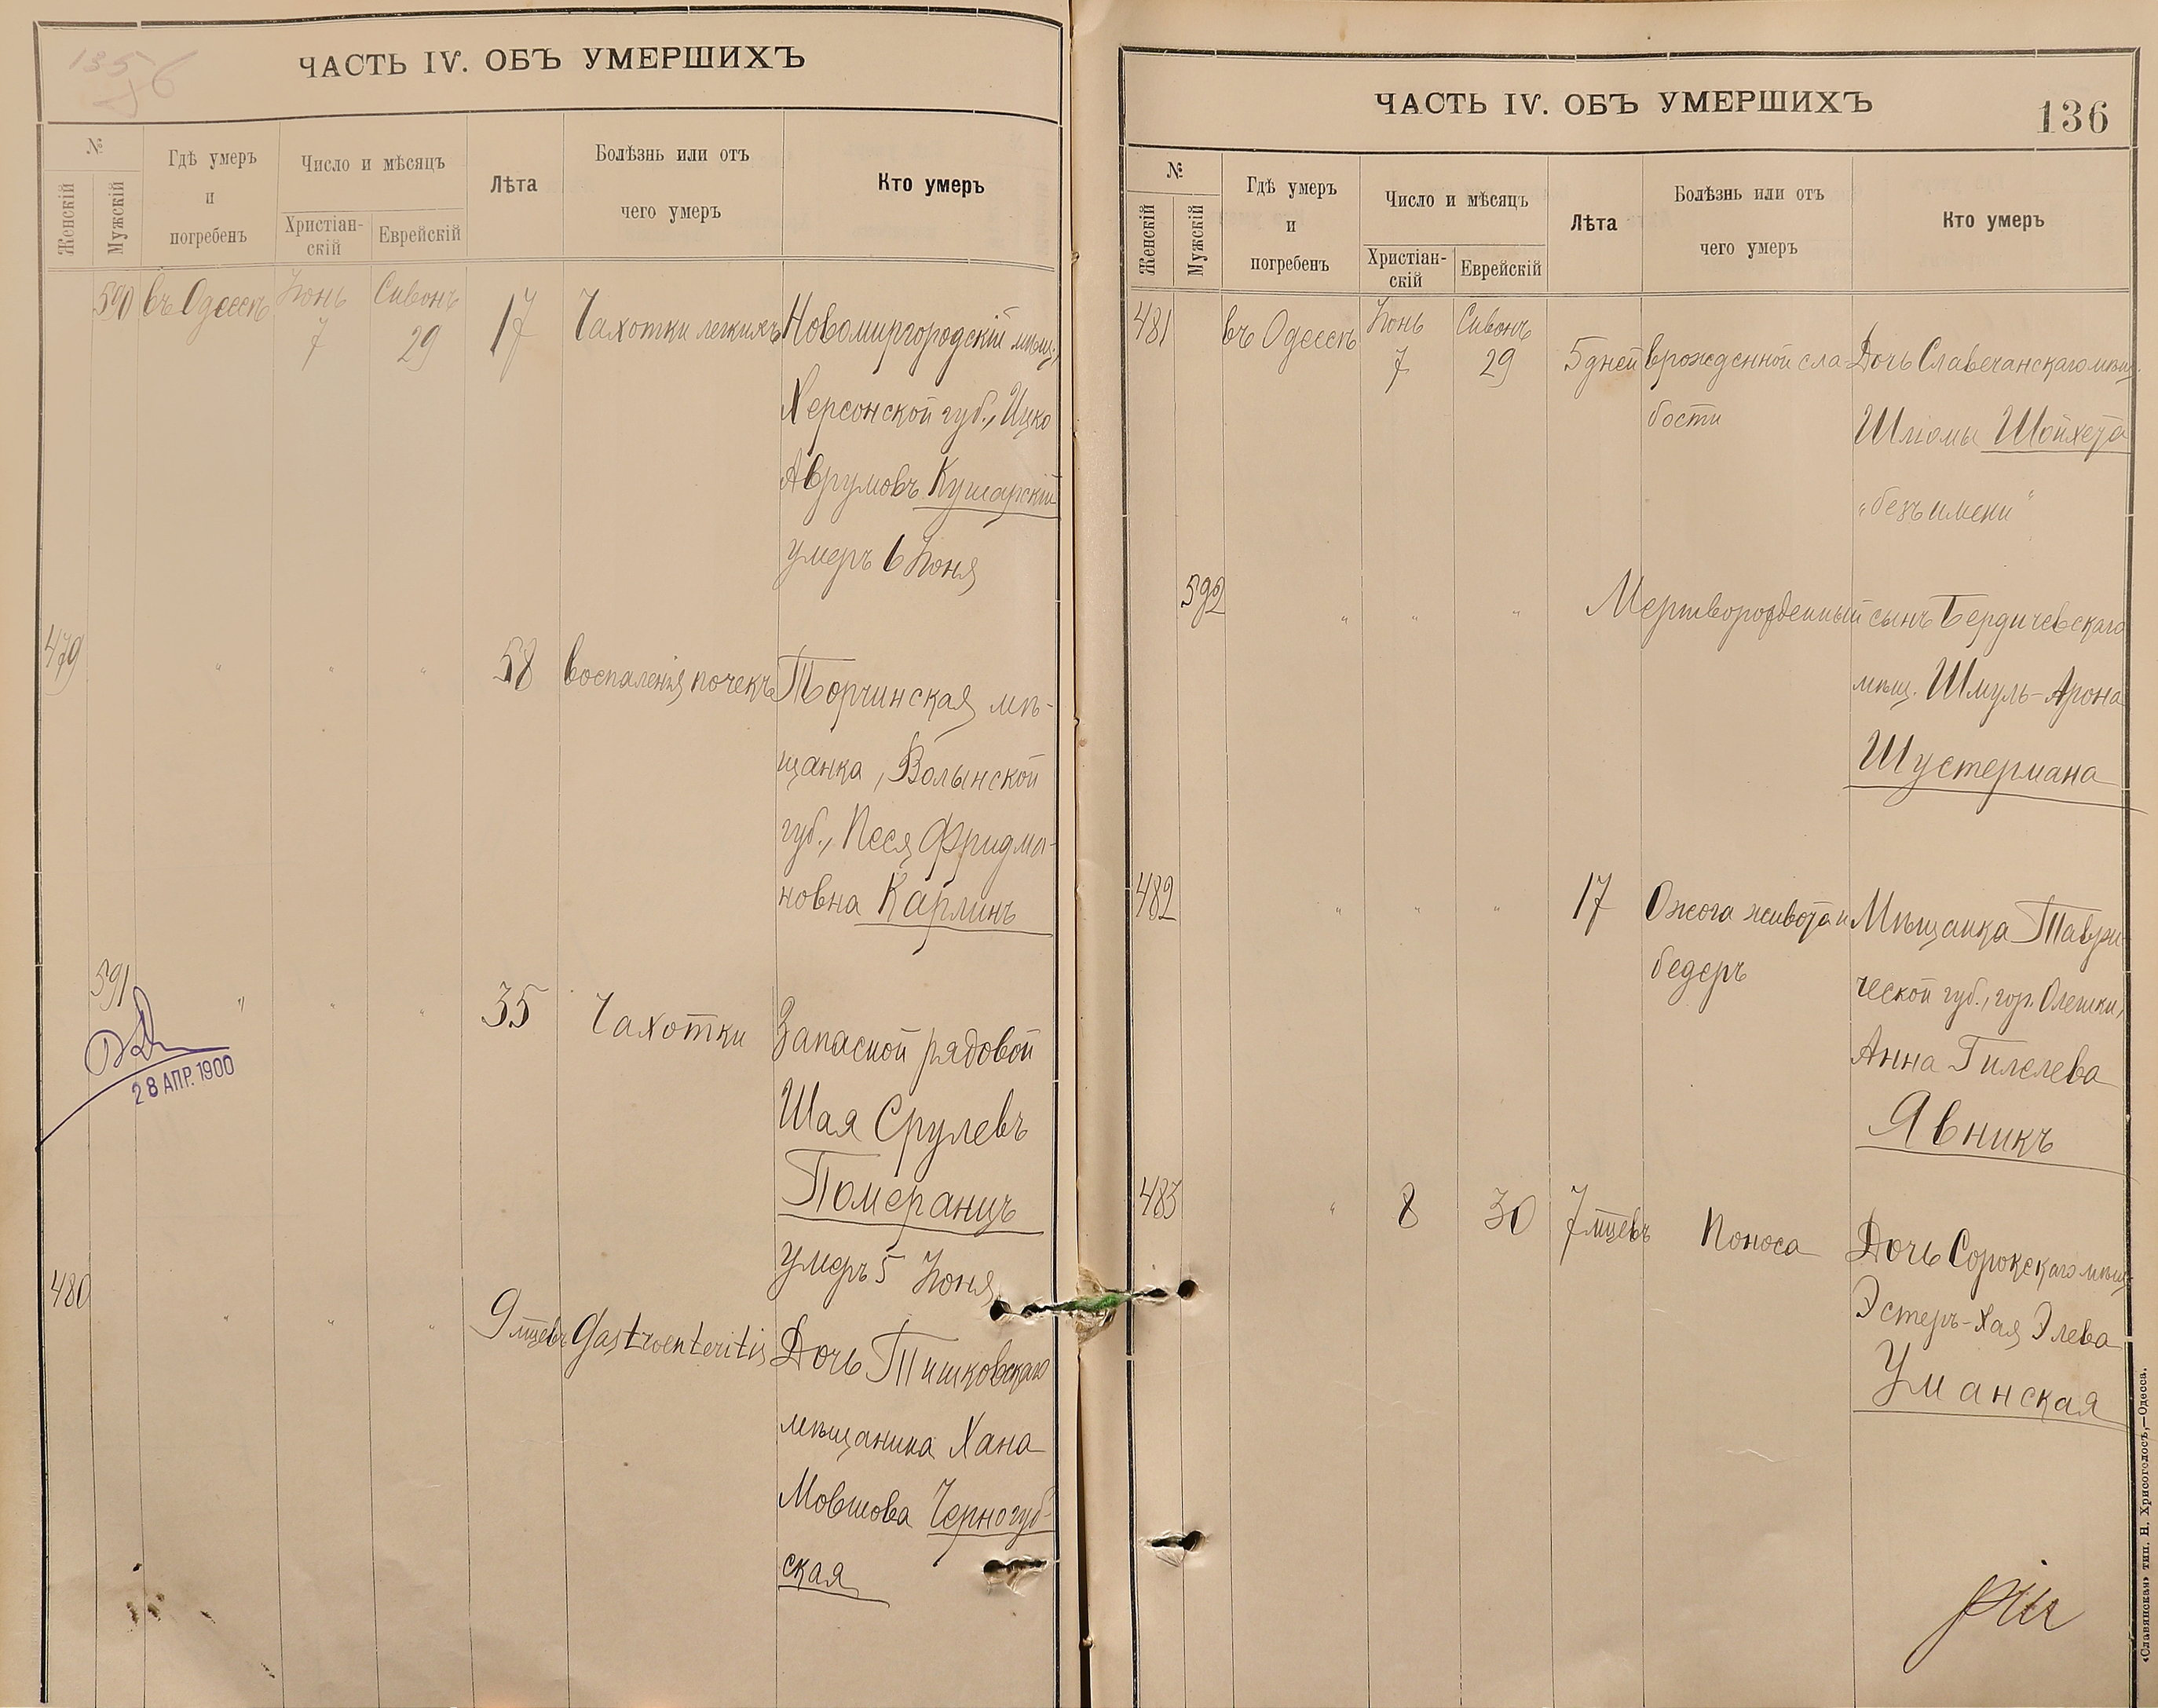 ЧАСТЬ IV. ОБЪ УМЕРШИХЪ
№
Женскій
Мужскій
Гдѣ умеръ
и
погребенъ
Число и мѣсяцъ
Христіан-
скій
Еврейскій
Лѣта
Болѣзнь или отъ
чего умеръ
Кто умеръ
590 въ Одессѣ Іюнь 7 Сивонъ 29 17 Чахотки легкихъ Новомиргородскій мѣщ.,
Херсонской губ., Ицко
Аврумовъ Кушарскій
умеръ 6 Іюня
479 " " " 58 воспаленія почекъ Торчинская мѣ-
щанка, Волынской
губ., Песя Фридма-
новна Карлинъ
591 " " " 35 Чахотки Запасной рядовой
28 АПР. 1900
Шая Срулевъ
Померанцъ
умеръ 5 Іюня
480 " " " 9 мцевъ Gastroenteritis Дочь Тишковскаго
мѣщанина Хана
Мовшова Черногуб-
ская
ЧАСТЬ IV. ОБЪ УМЕРШИХЪ
136
№
Женскій
Мужскій
Гдѣ умеръ
и
погребенъ
Число и мѣсяцъ
Христіан-
скій
Еврейскій
Лѣта
Болѣзнь или отъ
чего умеръ
Кто умеръ
481 въ Одессѣ Іюнь 7 Сивонъ 29 5 дней врожденной сла- Дочь Славечанскаго мѣщ.
бости Шлiомы Шойхета
„безъ имени"
592 " " " Мертворожденный сынъ Бердичевскаго
мѣщ. Шмуль-Арона
Шустермана
482 " " " 17 Ожога живота и Мѣщанка Таври-
бедеръ ческой губ., гор. Олешки,
Анна Гилелева
Явникъ
483 " 8 30 7 мцевъ Поноса Дочь Сорокскаго мѣщ.
Эстеръ-Хая Элева
Уманская
«Славянская» тип. Н. Хрисогелосъ,—Одесса.